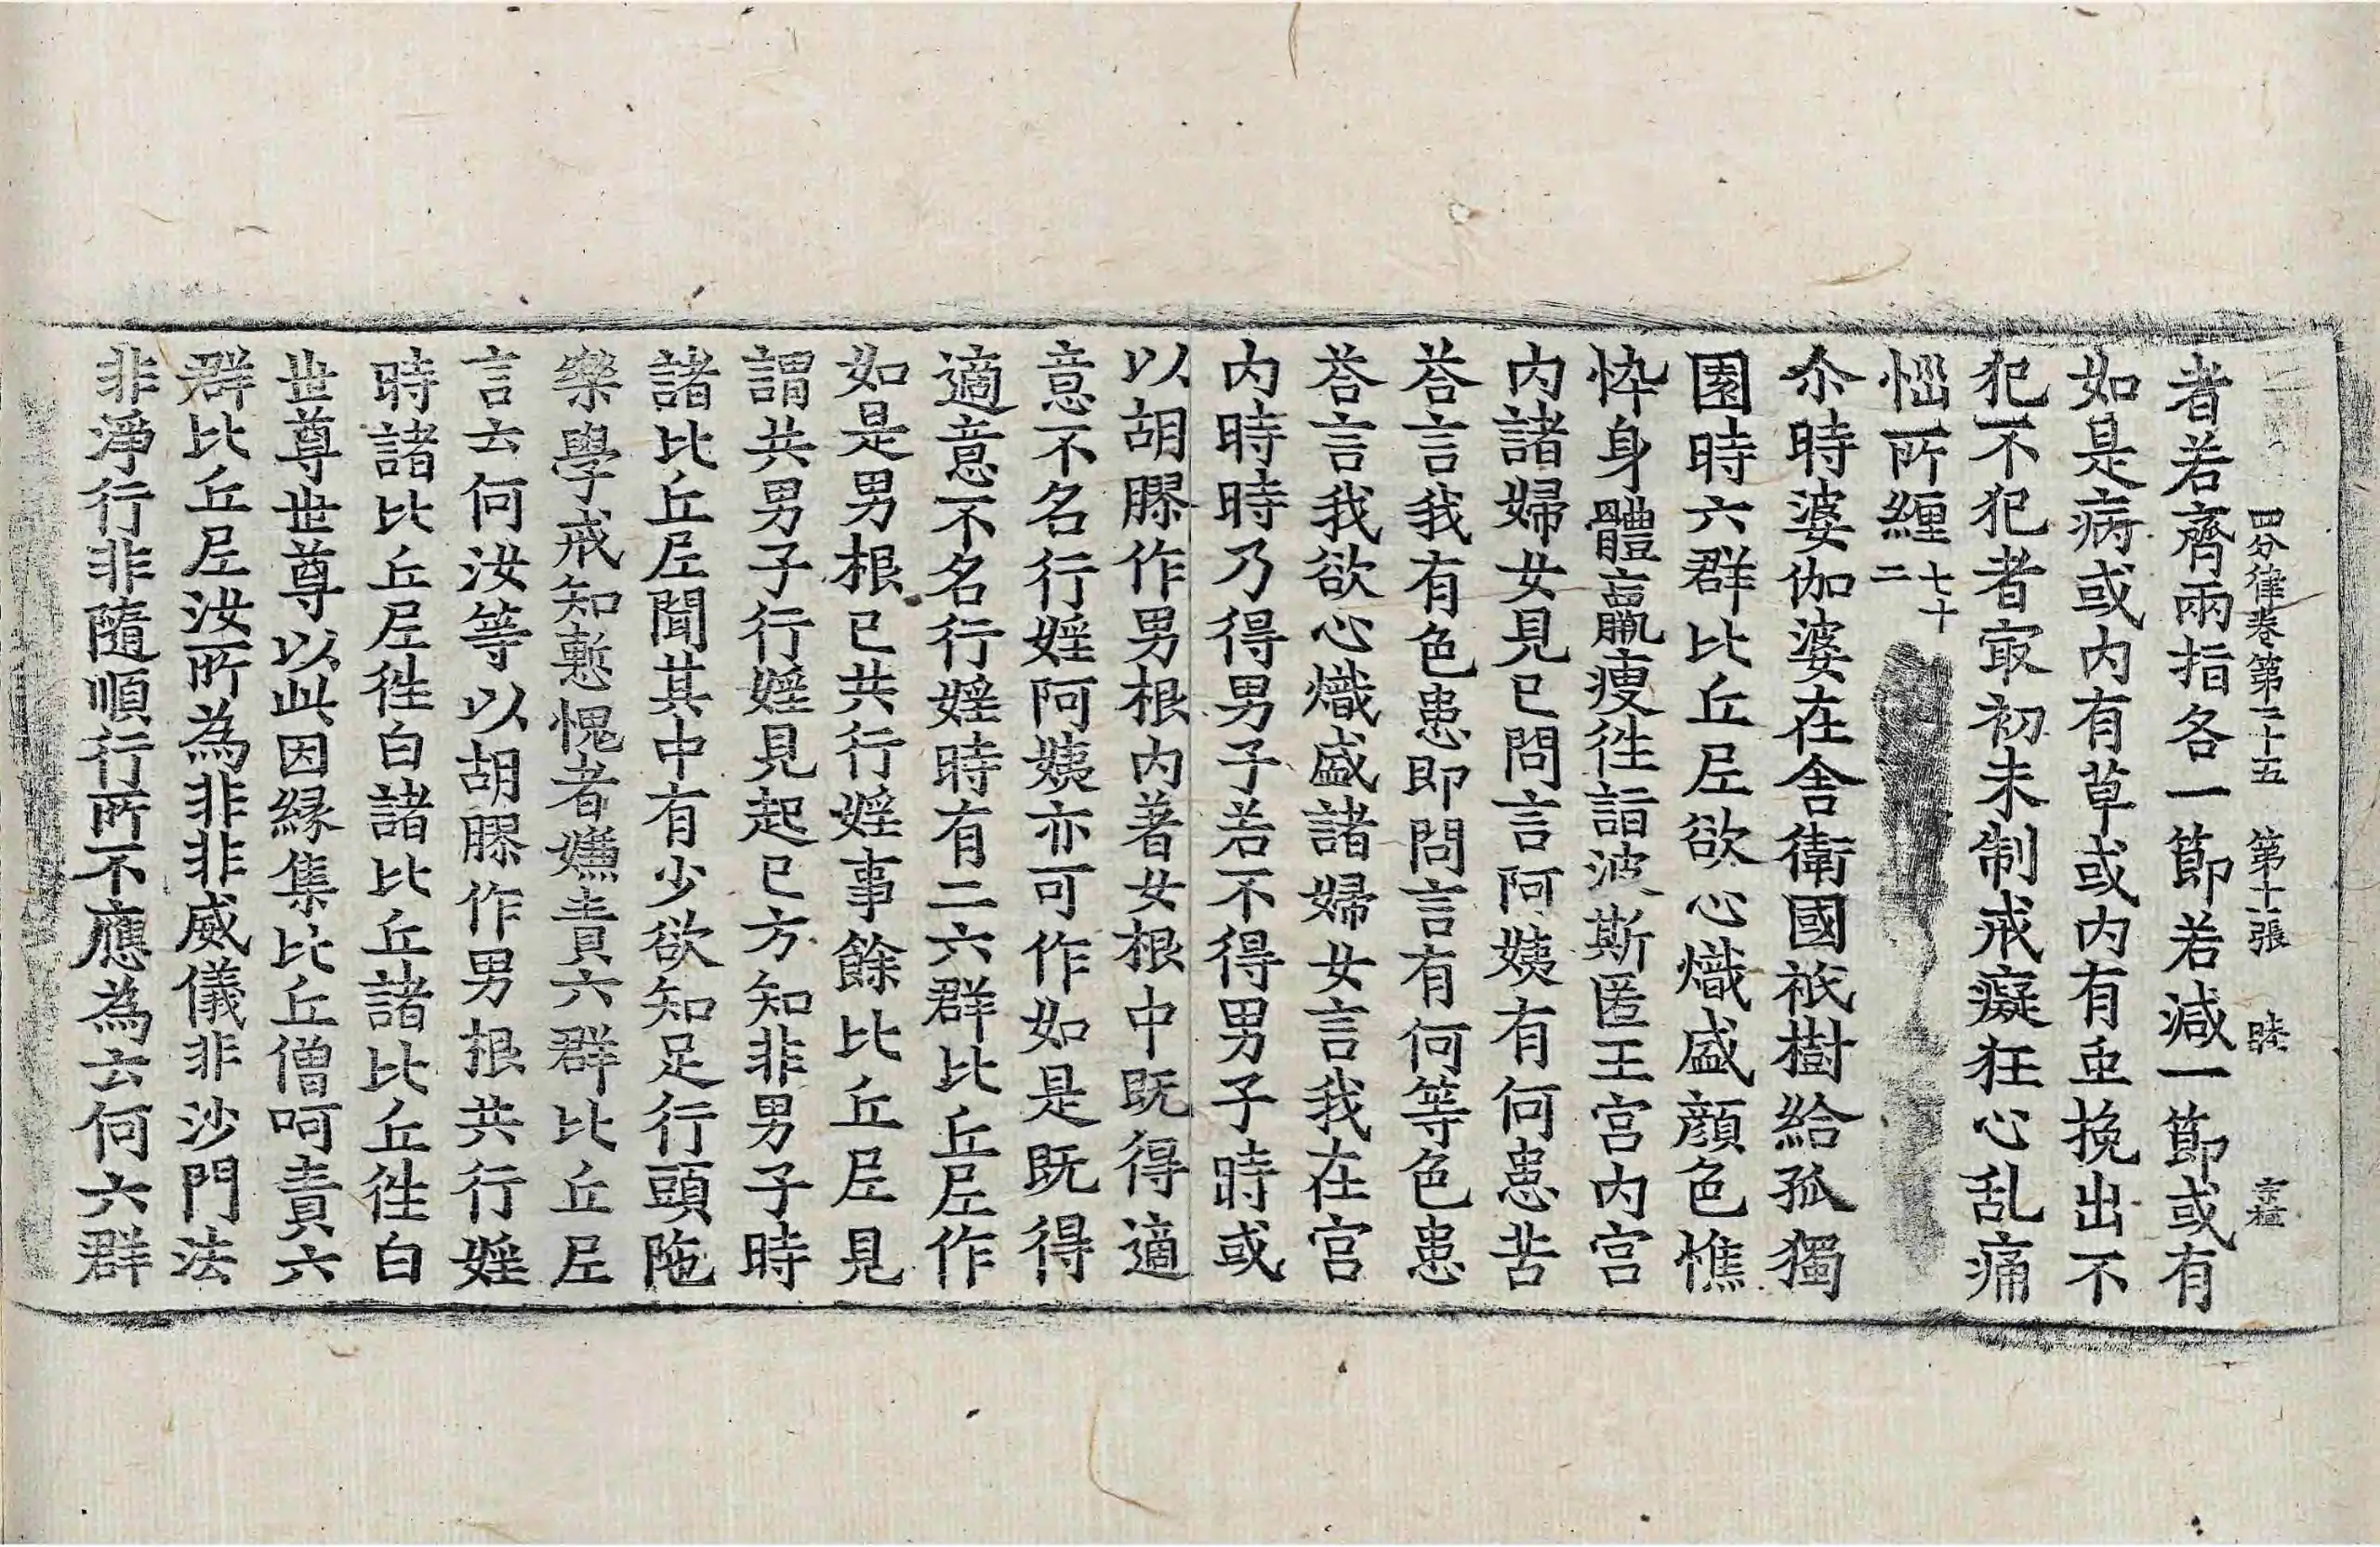 四分律卷第二十五　第十張　睦
者若齊兩指各一節若減一節或有
如是病或內有草或內有䖝挽出不
犯不犯者㝡初未制戒癡狂心乱痛
惱所纏七十二
尒時婆伽婆在舍衛國祇樹給孤獨
園時六群比丘𡰱欲心熾盛顔色憔
悴身體羸瘦徃詣波斯匿王宫內宫
內諸婦女見已問言阿姨有何患苦
荅言我有色患即問言有何等色患
荅言我欲心熾盛諸婦女言我在宫
內時時乃得男子若不得男子時或
以胡膠作男根內著女根中既得適
意不名行婬阿姨亦可作如是既得
適意不名行婬時有二六群比丘𡰱作
如是男根已共行婬事餘比丘𡰱見
謂共男子行婬見起已方知非男子時
諸比丘𡰱聞其中有少欲知足行頭陁
樂學戒知慙愧者嫌責六群比丘𡰱
言云何汝等以胡膠作男根共行婬
時諸比丘𡰱徃白諸比丘諸比丘徃白
世尊世尊以此因縁集比丘僧呵責六
群比丘𡰱汝所為非非威儀非沙門法
非淨行非隨順行所不應為云何六群